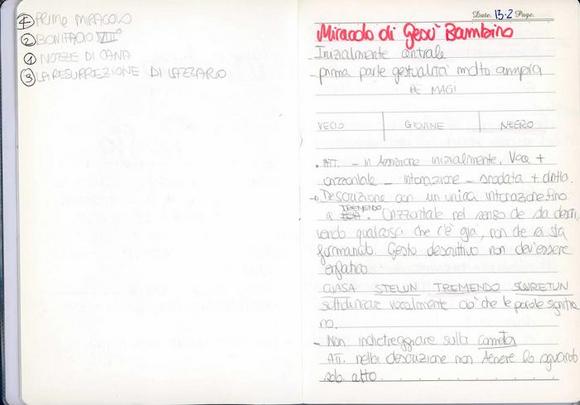 ④ PRIMO MIRACOLO
② BONIFACIO VIII°
① NOZZE DI CANA
③ LA RESURREZIONE DI LAZZARO
Date. 13-2 Page.
Miracolo di Gesù Bambino
Inizialmente centrale
prima parte gestualità molto ampia
RE MAGI
VECIO | GIOVINE | NEGRO
ATT. - in tensione inizialmente. Voce +
orizzontale - intonazione - snodata + diritto.
Descrizione con un unica intonazione fino
a TREMENDO. Orizzontale nel senso che sta descri
vendo qualcosa che c'è già, non che si sta
formando. Gesto descrittivo non dev'essere
enfatico
STELUN TREMENDO
sottolineare vocalmente ciò che le parole significa
no.
- Non indietreggiare sulla cometa
ATT. nella descrizione non tenere lo sguardo
solo alto.